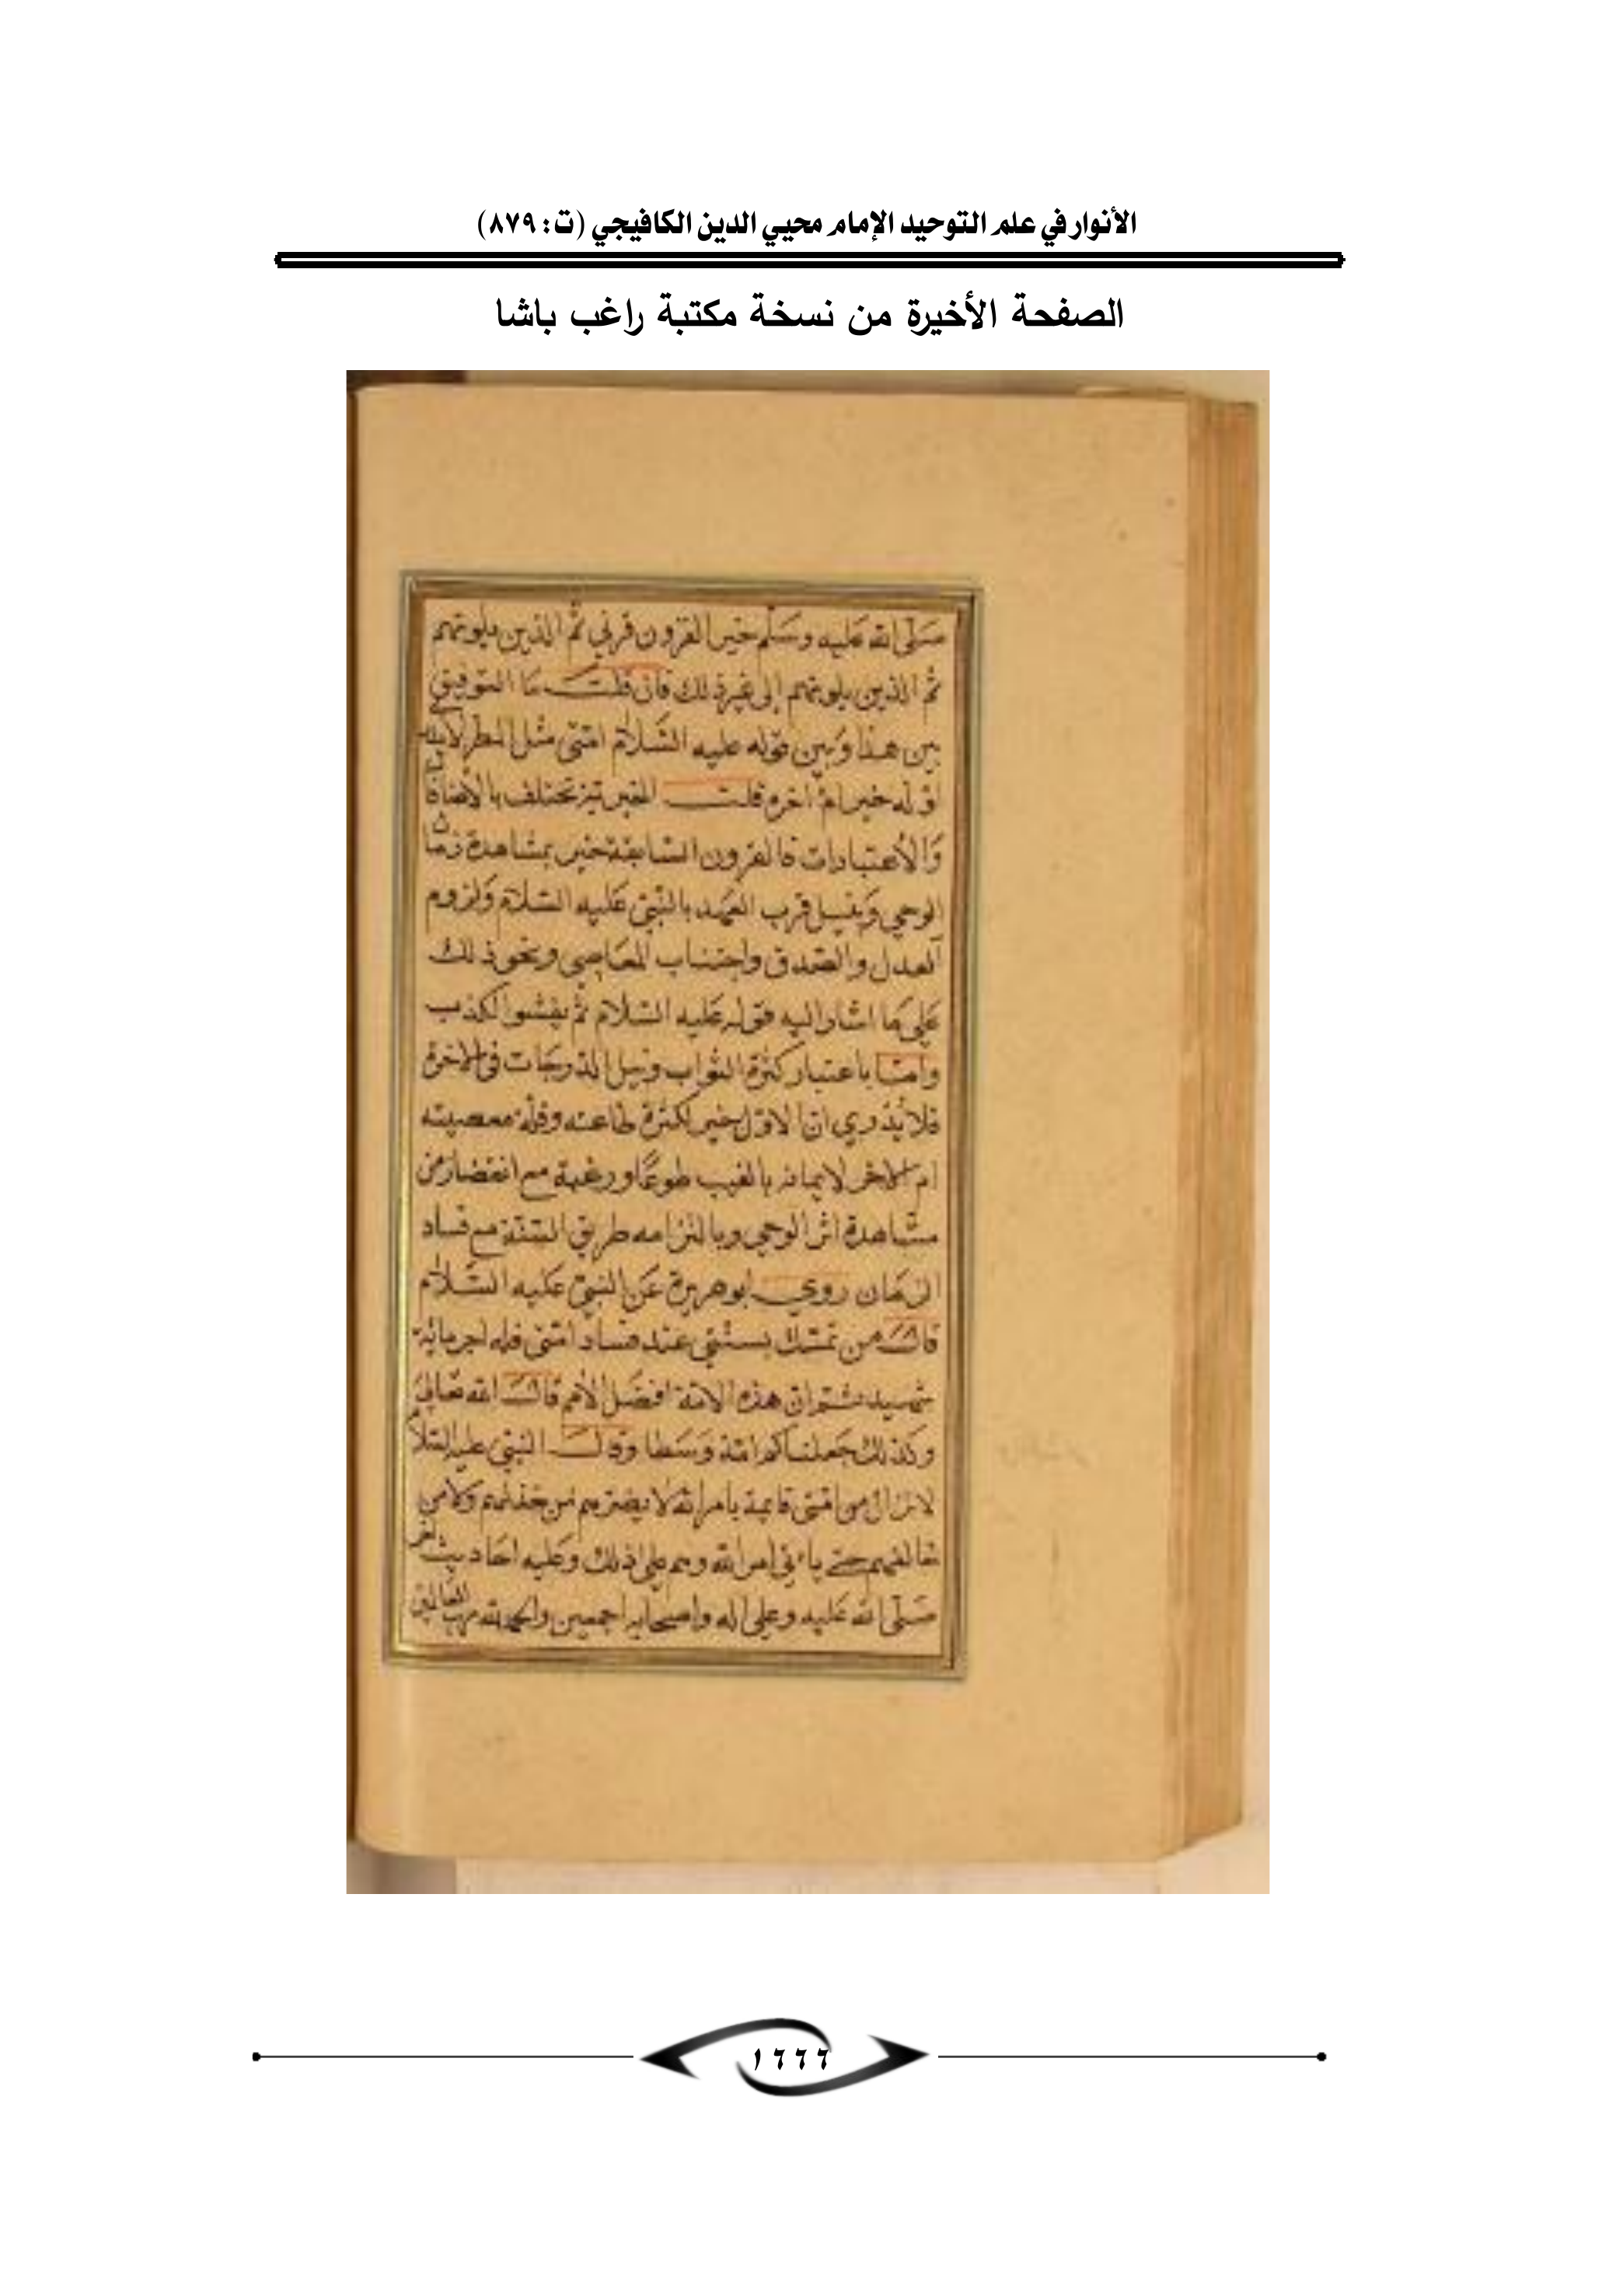 الأنوار في علم التوحيد الإمام محيي الدين الكافيجي (ت: ٨٧٩)
الصفحة الأخيرة من نسخة مكتبة راغب باشا
صَلّى الله عَليه وسَلّم خير القرون قرني ثمّ الذين يلونهم
ثمّ الذين يلونهم إلى غير ذلك فان قلت ما التوفيق
بين هذا وبين قوله عليه السّلام امّتي مثل المطر لا يدرى
اوّله خير امْ آخره قلت الخيريّة تختلف بالاضافة
وَالاعتبارات فالقرون السّابقة خير بمشاهدة زمان
الوحي وبنيل قرب العهد بالنّبيّ عَليه السّلام ولزوم
العدل والصّدق واجتناب المعَاصي ونحو ذلك
عَلى مَا اشار اليه قوله عَليه السّلام ثمّ يفشوا لكذب
وامّا باعتبار كثرة الثواب ونيل الدرجَات في الاخرة
فلا يُدري انّ الاوّل خير لكثرة طاعته وقلّة معصيته
ام الاخر لايمانه بالغيب طوعًا ورغبة مع انقضاء زمن
مشاهدة اثر الوحي وبالتزامه طريق السّنّة مع فساد
الزمَان روي ابو هريرة عَن النبيّ عَليه السّلام
قال من تمسّك بسنّتي عند فساد امّتي فله اجر مائة
شهيد ثمّ انّ هذه الامّة افضَل الامم قال الله تعَالى
وكذلك جَعلناكم امّة وَسَطا وقال النّبيّ عليه السّلام
لا تزال من امّتي قايمة بامر الله لا يضرّهم من خذلهم ولا من
خالفهم حتى ياتي امر الله وهم على ذلك وعَليه احَاديث اخر
صَلّى الله عَليه وعلى اله واصحابه اجمعين والحمد لله رب العالمين
١٦٦٦